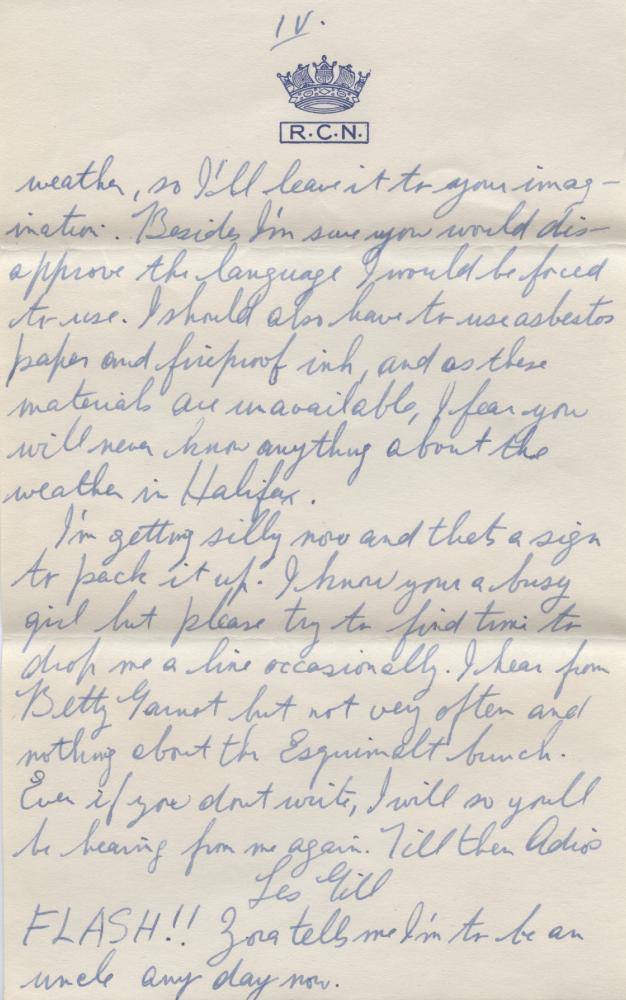 IV.
R.C.N.
weather, so I'll leave it to your imag-
ination. Besides I'm sure you would dis-
approve the language I would be forced
to use. I should also have to use asbestos
paper and fireproof ink, and as these
materials are unavailable, I fear you
will never know anything about the
weather in Halifax.
I'm getting silly now and thats a sign
to pack it up. I know your a busy
girl but please try to find time to
drop me a line occasionally. I hear from
Betty but not very often and
nothing about the Esquimalt bunch.
Even if you dont write, I will so youll
be hearing from me again. Till then Adios
Les Gill
FLASH!! Zora tells me I'm to be an
uncle any day now.